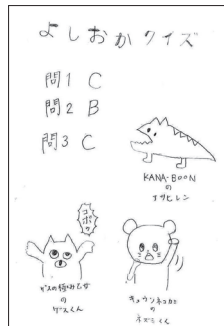 よしおかクイズ
問1 C
問2 B
問3 C
KANA-BOON
の
コポゥ
ゲスの極み乙女
の
ゲスくん
キュウソネコカミ
の
ネズミくん